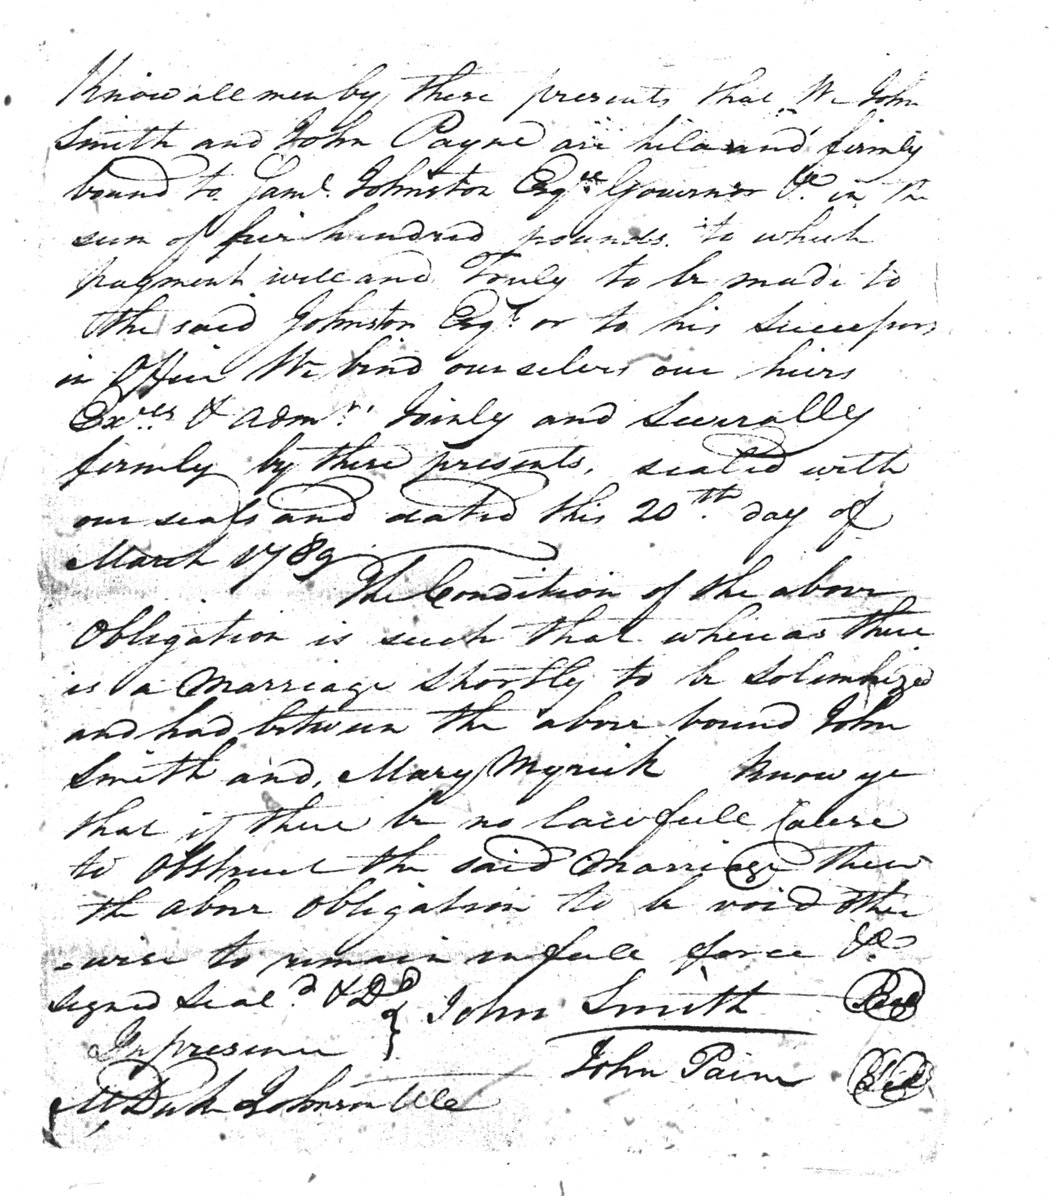 Know all men by these presents that We John
Smith and John Payne are held and firmly
bound to Saml. Johnston Esqre Governor &c in the
sum of five hundred pounds to which
payment well and Truly to be made to
the said Johnston Esqr. or to his Successors
in Office We bind ourselves our hiers
Exrs & Admrs Joinly and Severally
firmly by these presents, sealed with
our seals and dated this 20th. day of
March 1789
The Condition of the above
Obligation is such that whereas there
is a Marriage Shortly to be Solemnized
and had between the above bound John
Smith and, Mary Myrick Know ye
that if there be no lawfull Cause
to Obstruct the said Marriage then
the above Obligation to be void other
-wise to remain in full force &c
Signed Seald & DD
In presence
John Smith Seal
John Paine Seal
Johnson